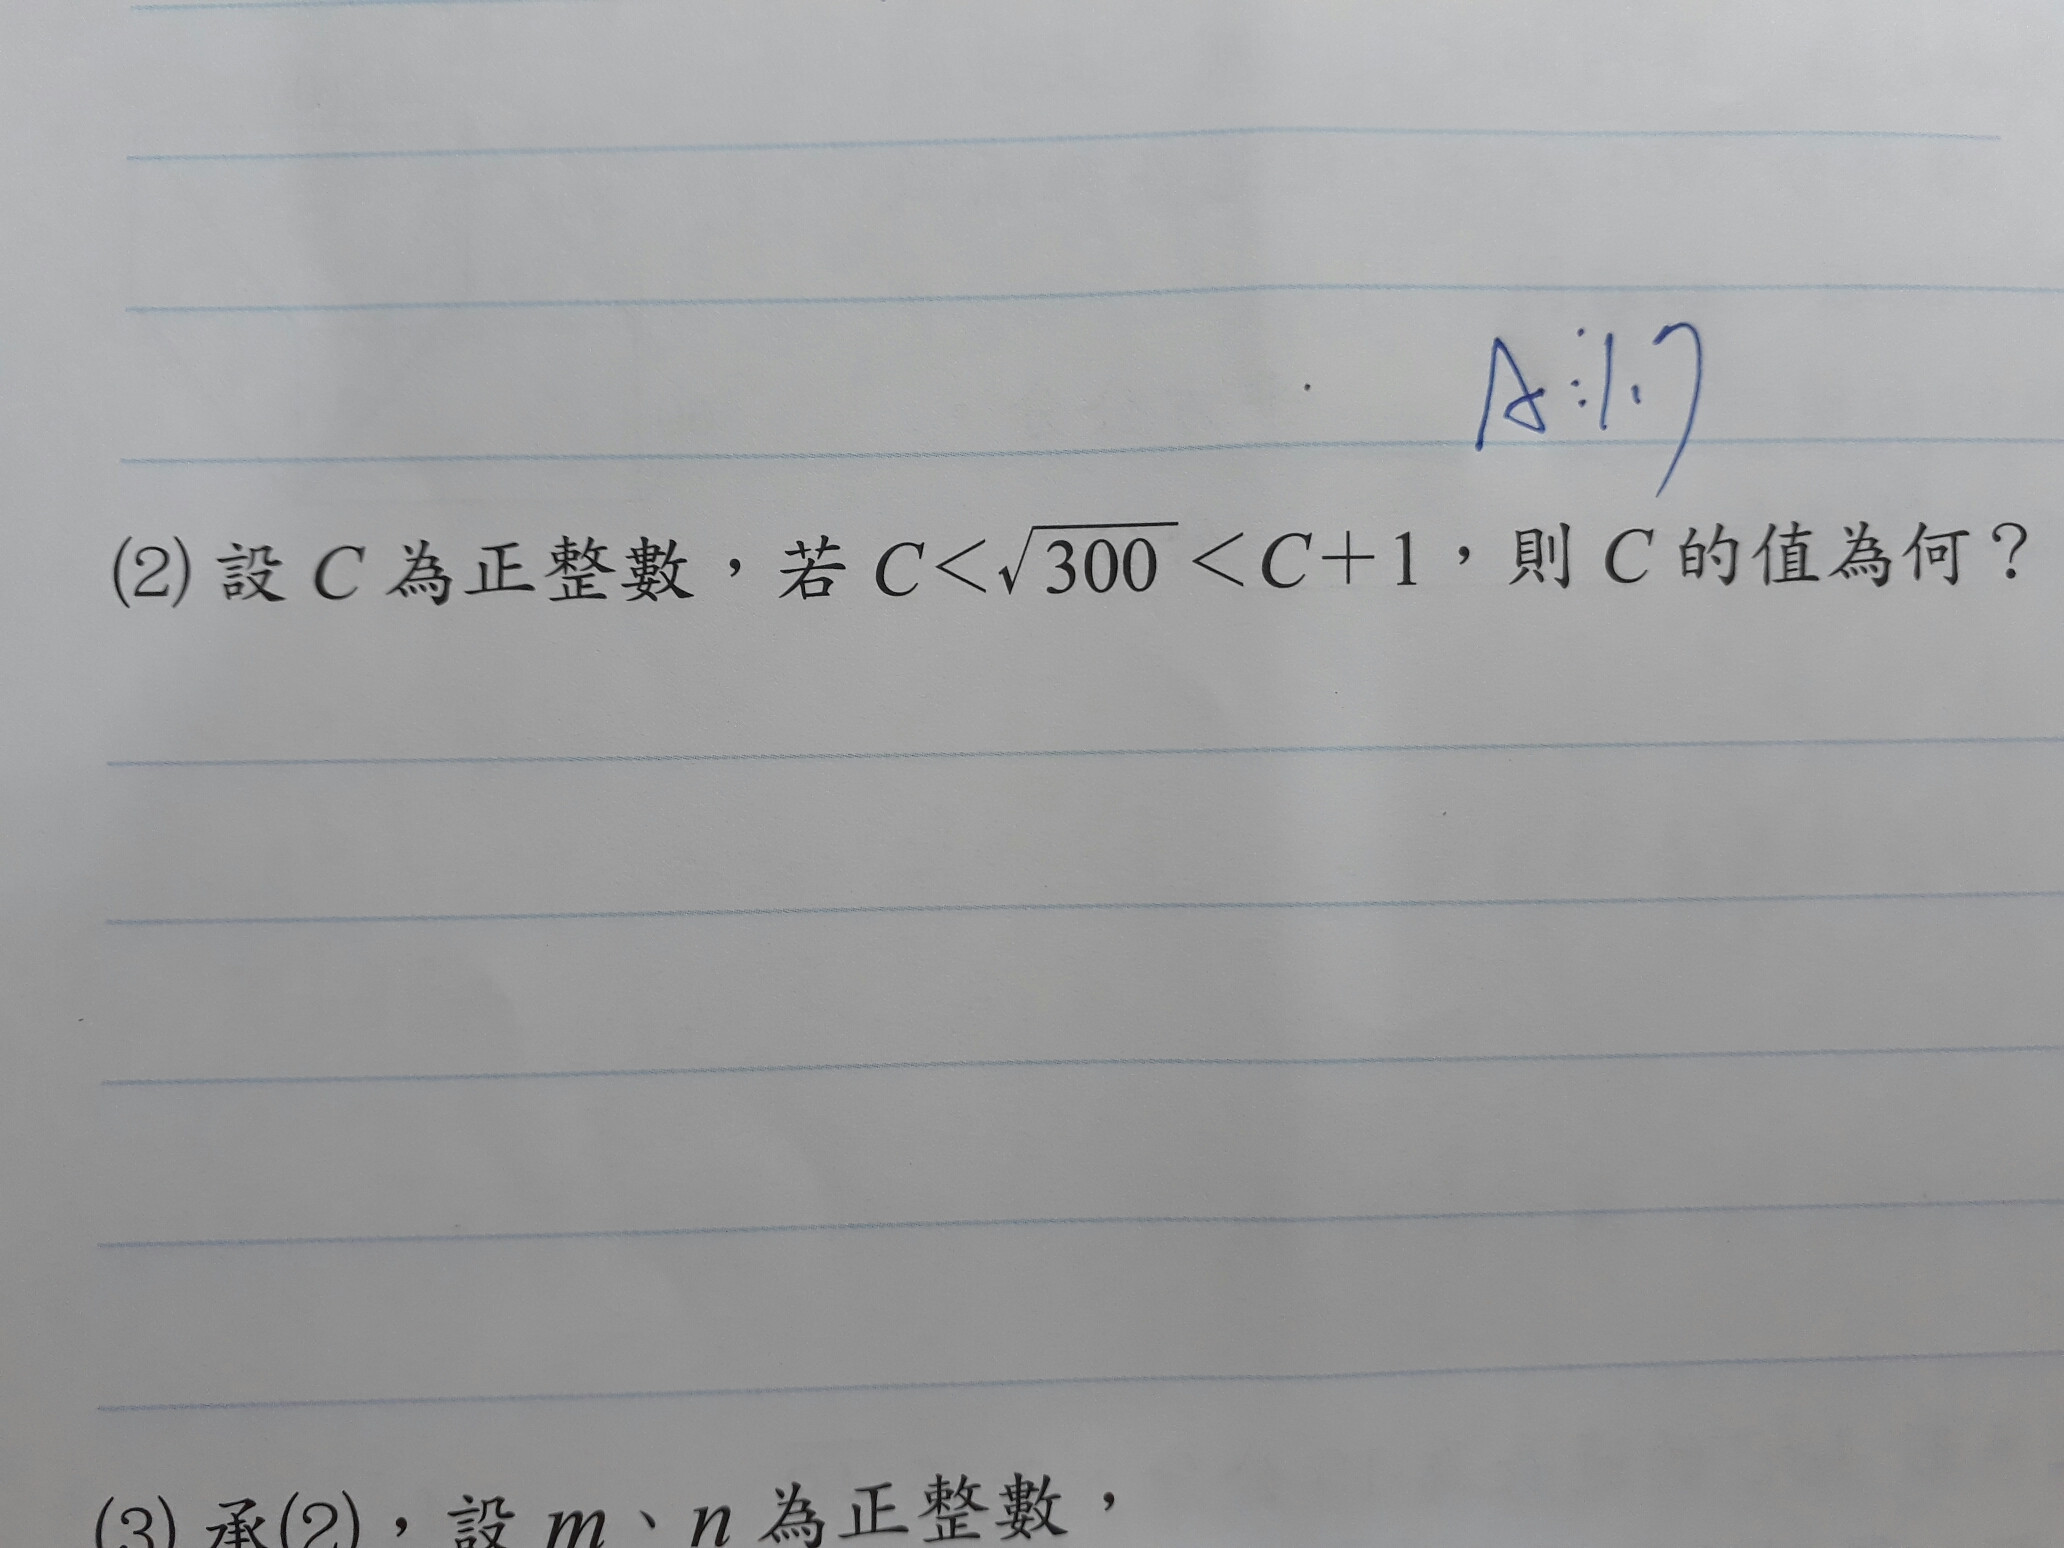 A:1.7
(2) 設 C 為正整數，若 C<√300 <C+1，則 C 的值為何？
(3) 承(2)，設 m、n 為正整數，